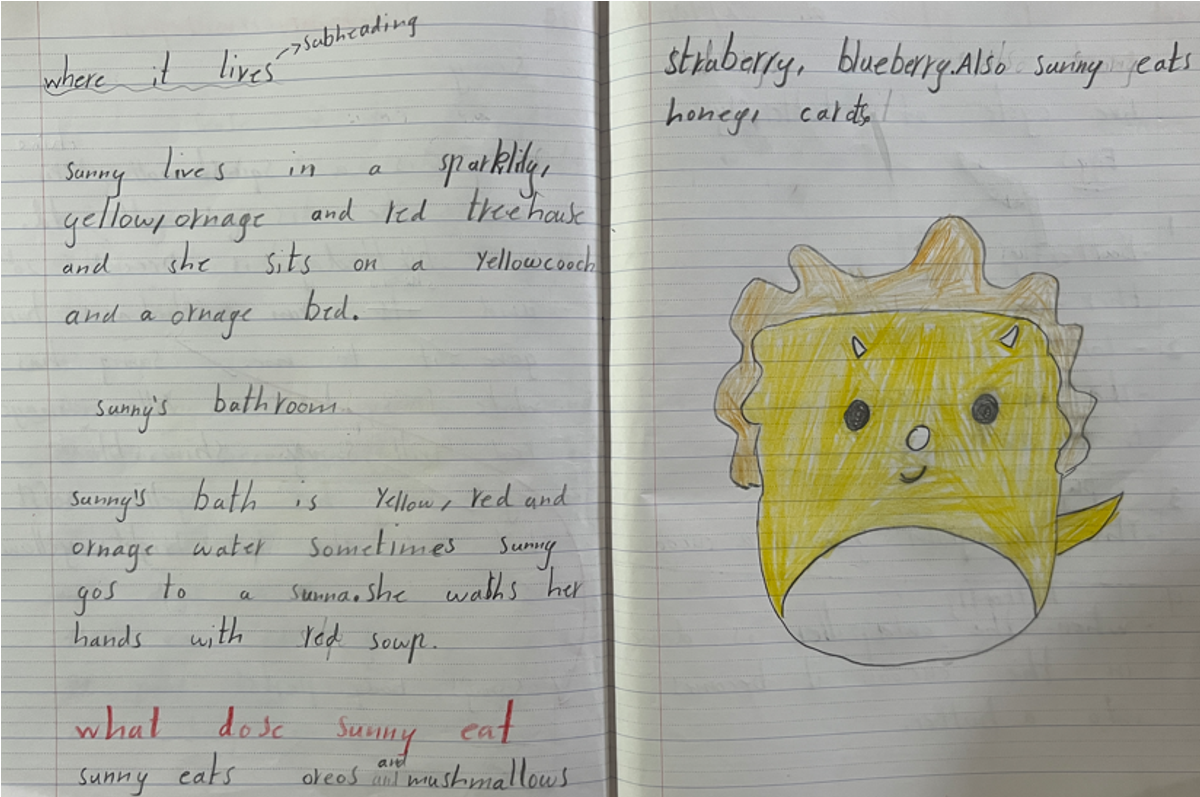 where it lives →subheading
sunny lives in a sparklily,
yellow, ornage and red treehouse
and she sits on a Yellow cooch
and a ornage bed.
sunny's bathroom
sunny's bath is Yellow, red and
ornage water sometimes sunny
gos to a sunna. she waths her
hands with red sowp.
what dose sunny eat
sunny eats oreos and mushmallows
straberry, blueberry. Also sunny eats
honey, cards